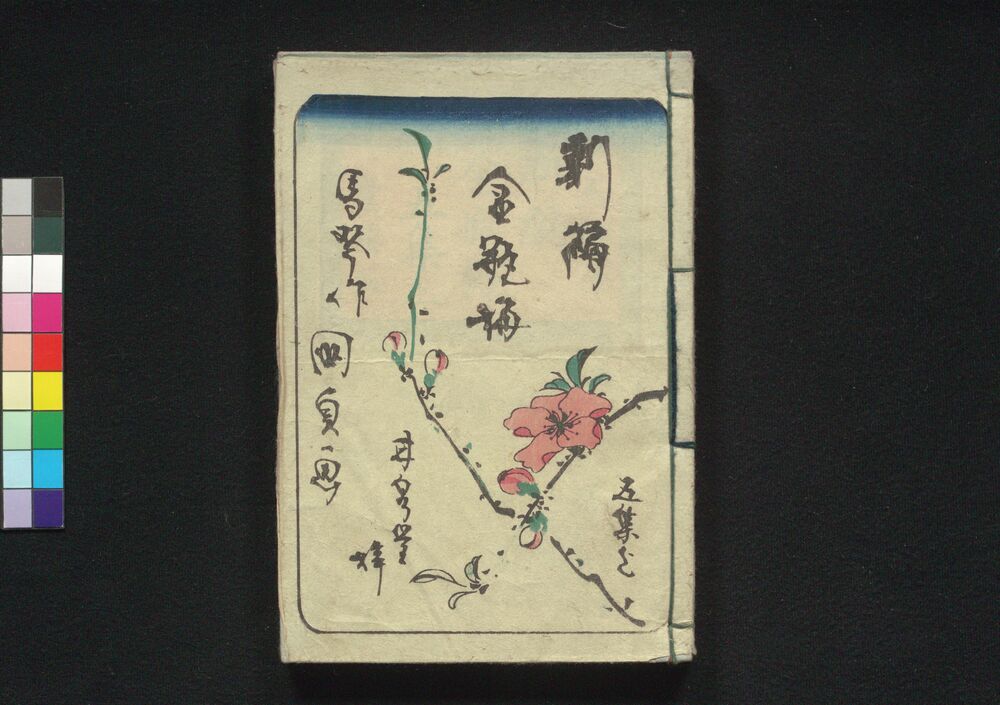 新編
金瓶梅
馬琴作
國貞画
甘泉堂
梓
五集上